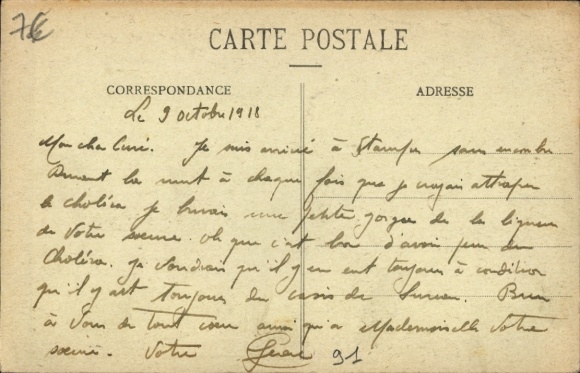 7€
CARTE POSTALE
CORRESPONDANCE
ADRESSE
Le 9 octobre 1918
Mon cher Curé. Je suis arrivé à Etampes sans encombre
Durant la nuit à chaque fois que je croyais attraper
le choléra je buvais une petite gorgée de la liqueur
de votre soeur. Oh que c'est bon d'avoir peur du
Choléra. Je voudrais qu'il y en eut toujours à condition
qu'il y ait toujours du cassis de Bien
à Vous de tout coeur ainsi qu'à Mademoiselle votre
soeur. Votre
91